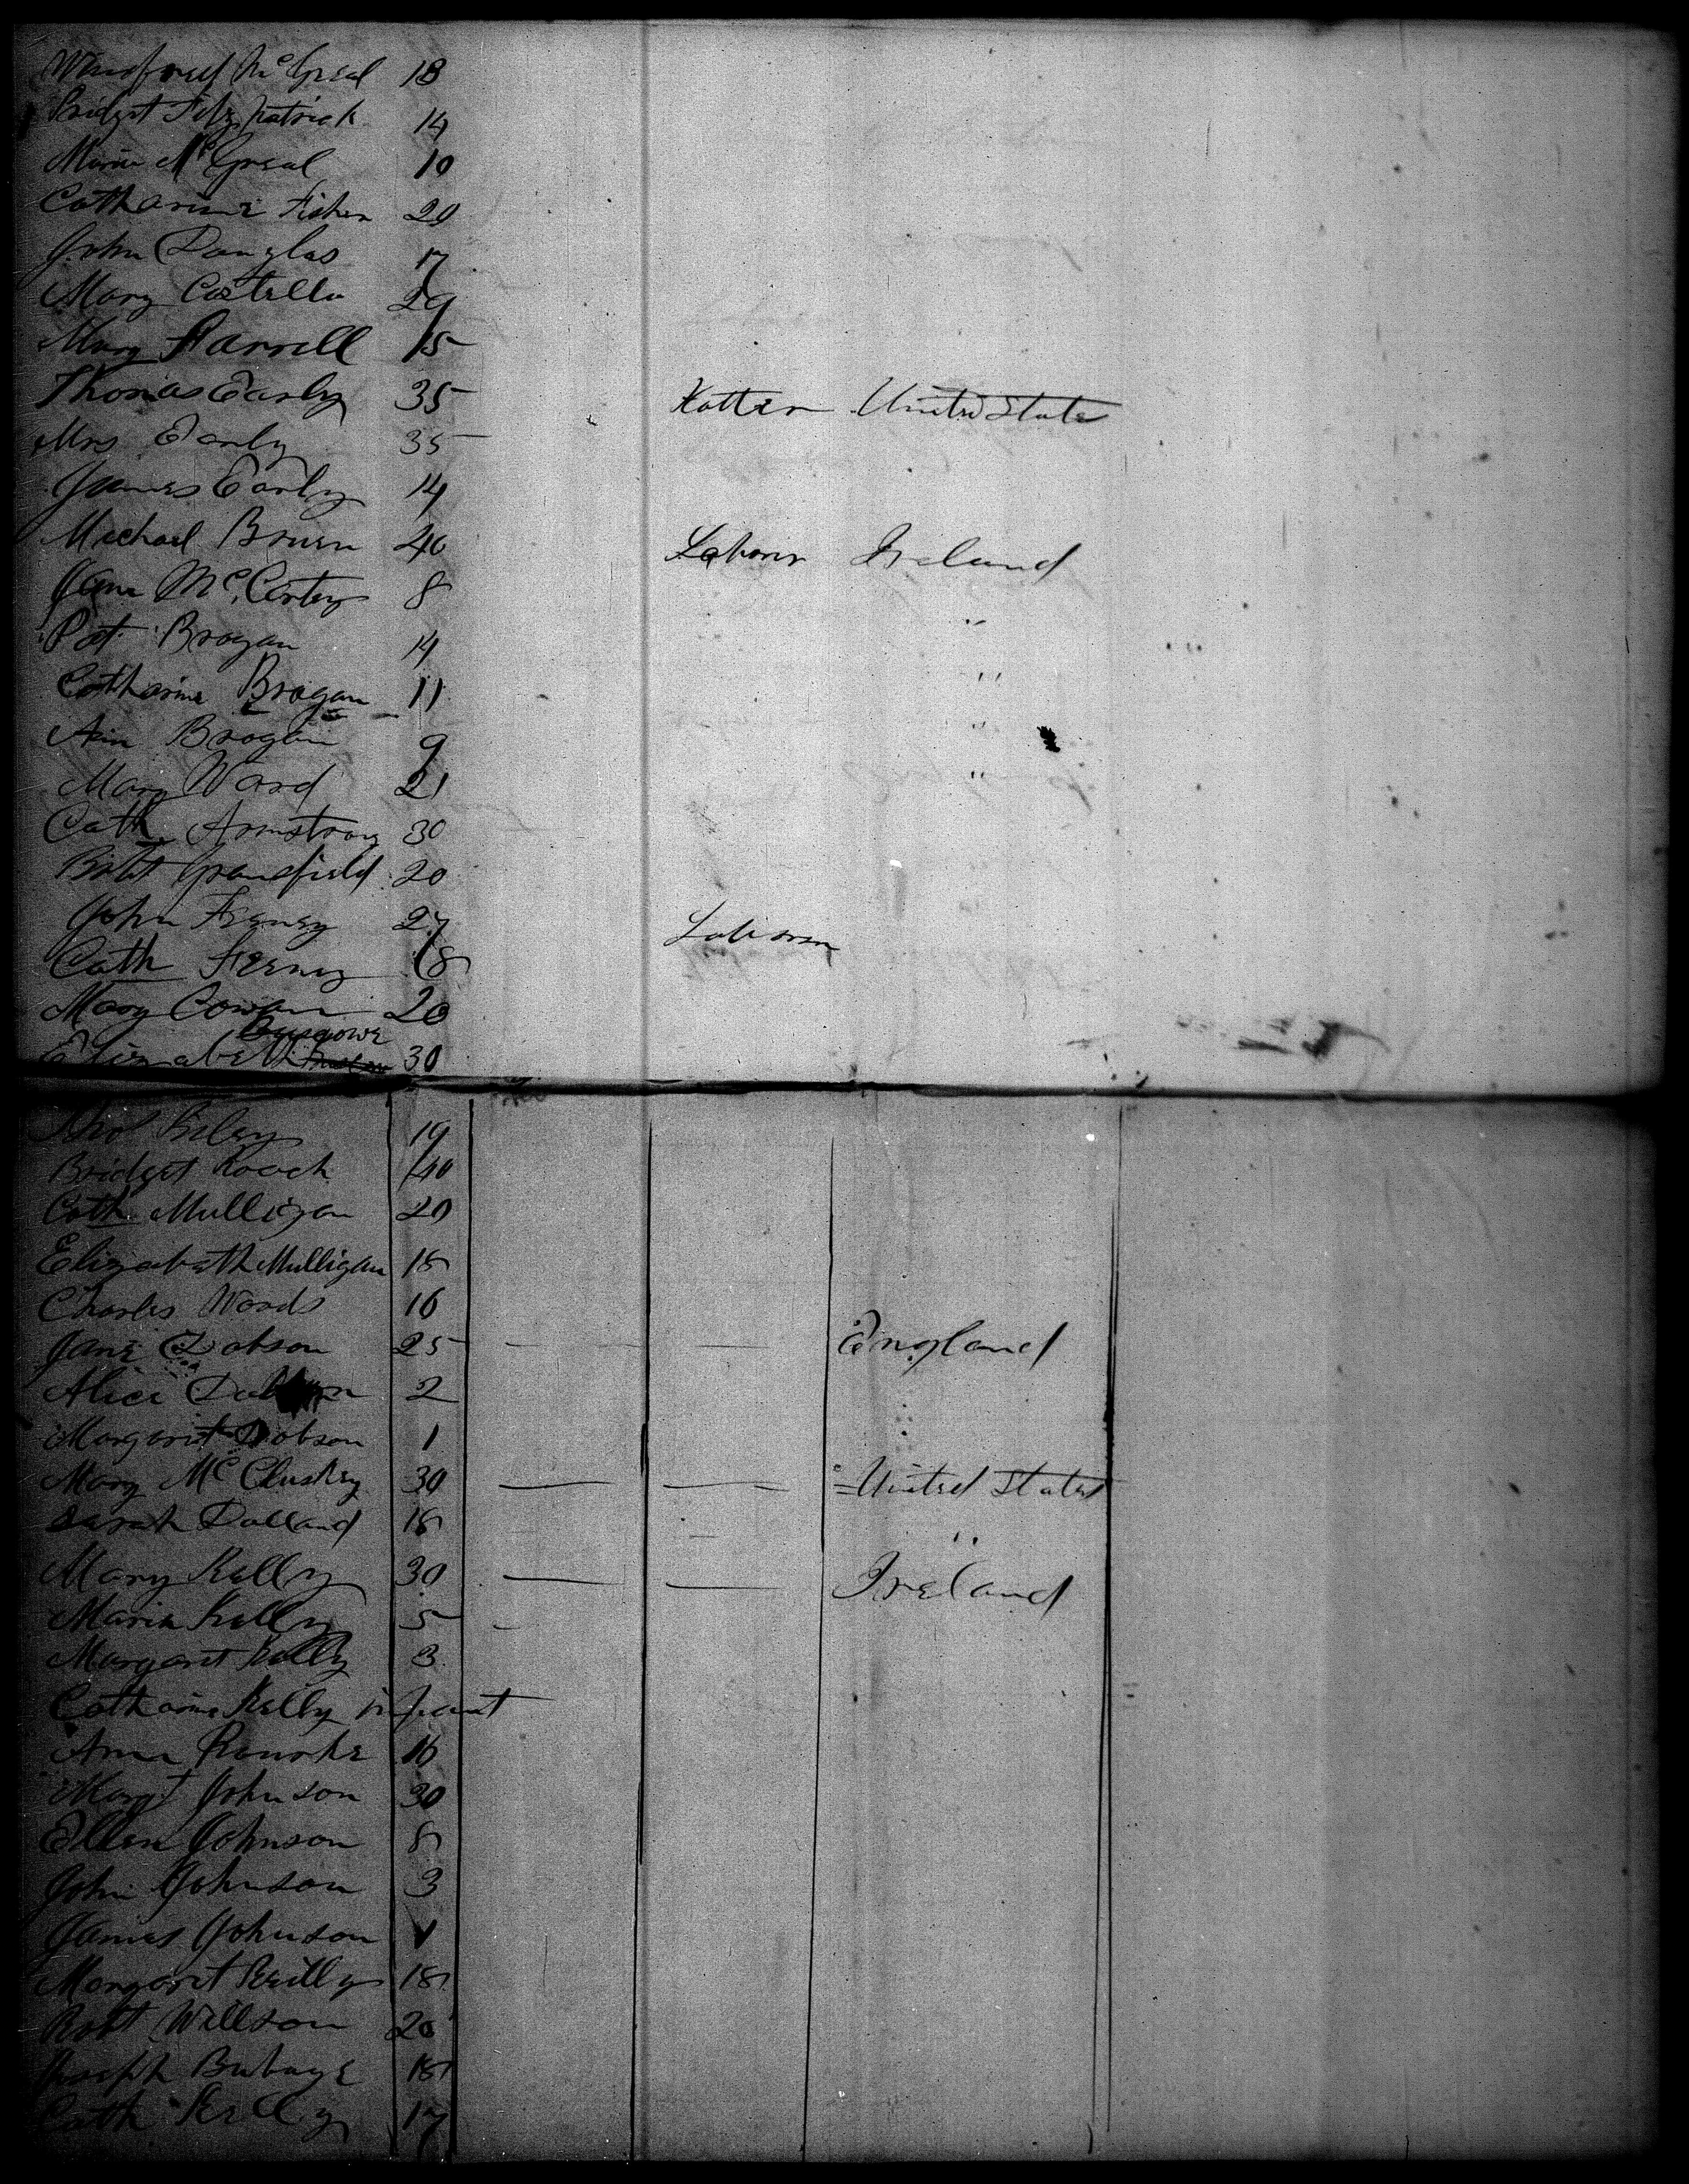 Winifred McGreal 18
Bridget Fitzpatrick 14
Maria McGreal 10
Catharine Fisher 20
John Douglas 17
Mary Costello 29
Mary Farrell 15
Thomas Early 35 Hatter United States
Mrs Early 35
James Early 14
Michael Bruen 40 Laborer Ireland
Jane McCartey 8 "
Pat Brogan 14 "
Catharine Brogan 11 "
Ann Brogan 9 "
Mary Ward 21
Cath Armstrong 30
Grandfield 20
John Feeney 27 Laborer
Cath Feeney 18
Mary Cowan 20
Elizabeth 30
Riley 19
Bridget Roach 40
Cath Mulligan 20
Elizabeth Mulligan 18
Charles Woods 16
Jane Dobson 25 — — England
Alice Dobson 2 "
Margaret Dobson 1 "
Mary McCluskey 30 — — United States
Sarah Dolland 18 "
Mary Kelly 30 — — Ireland
Maria Kelly 5
Margaret Kelly 3
Catharine Kelly infant
Ann Rourke 16
Margt Johnson 30
Ellen Johnson 8
John Johnson 3
James Johnson 1
Margaret Reilly 18
Robt Willson 20
Joseph Bubage 18
Cath Reilly 17